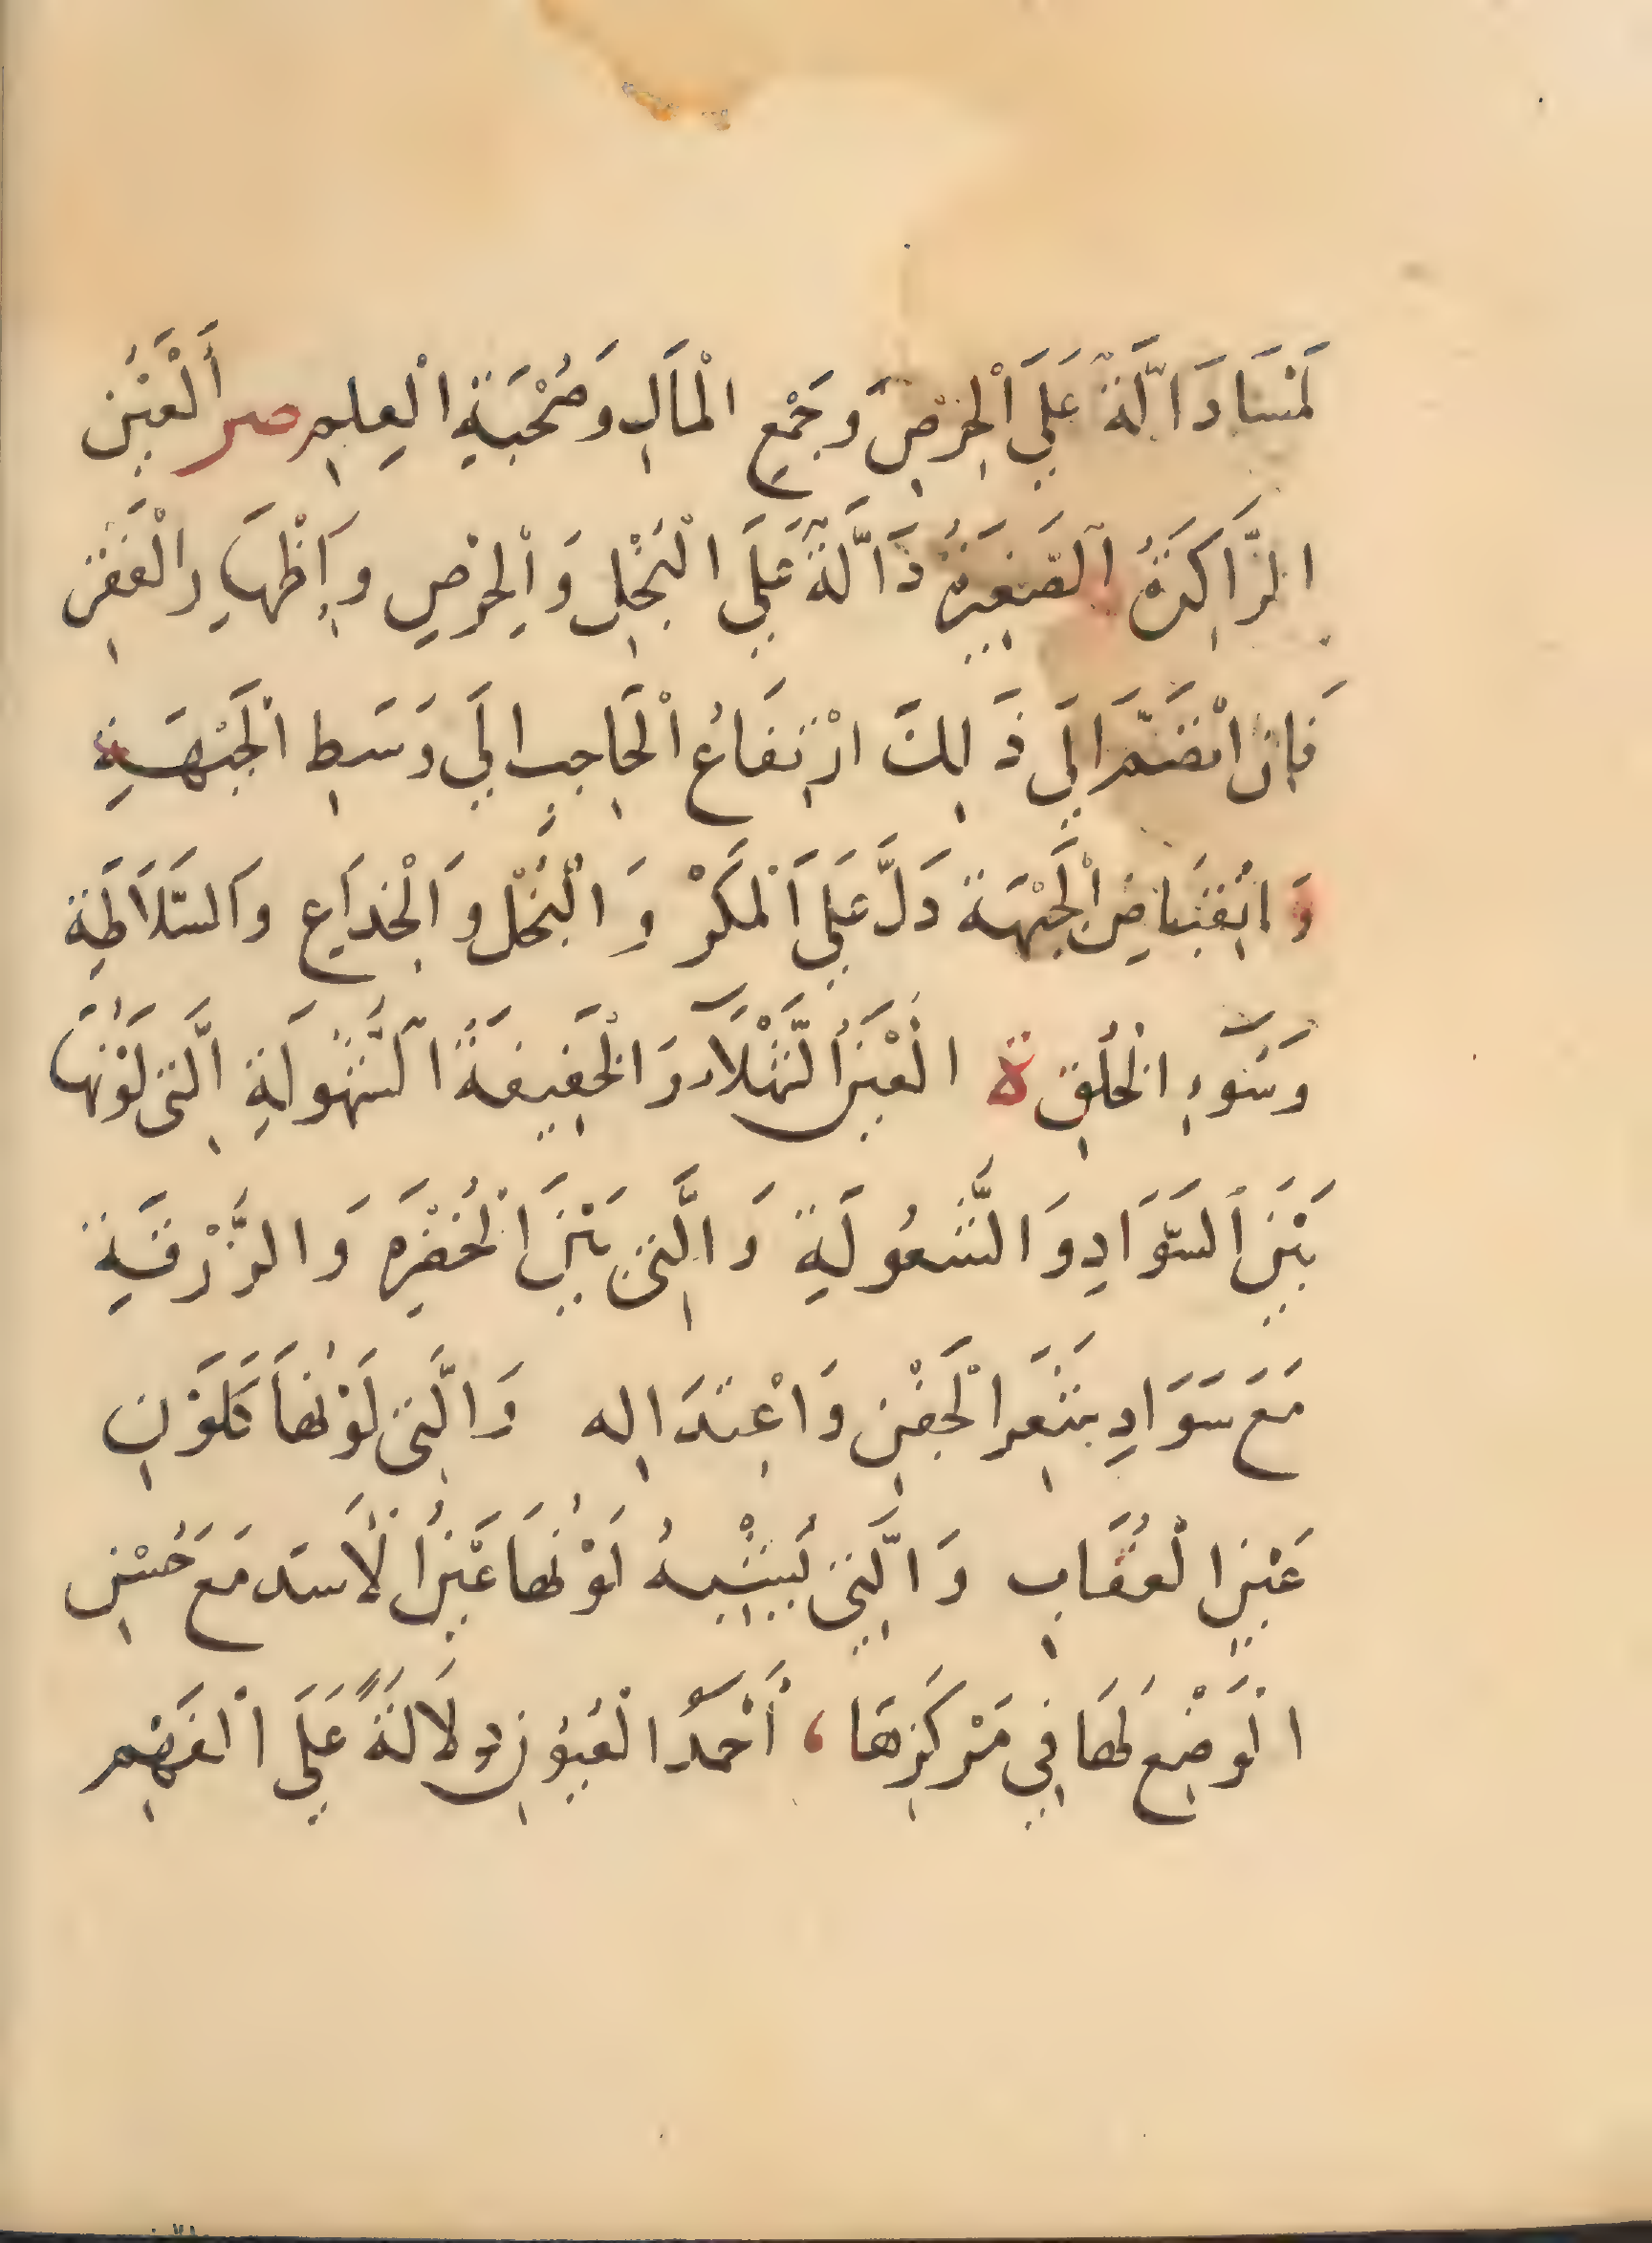 لمسا دَالَّةٌ عَلَى الْحِرْصِ وَجَمْعِ الْمَالِ وَصُحْبَةِ الْعِلمِ صر الْعَيْنُ
الرَّاكِدَةُ الصَّغِيرَةُ دَالَّةٌ عَلَى الْبُخْلِ وَالْحِرْصِ وَإِظْهَارِ الْفَقْرِ
فَإِنِ انْضَمَّ إِلَى ذَلِكَ ارْتِفَاعُ الْحَاجِبِ إِلَى وَسَطِ الْجَبْهَةِ
وَانْقِبَاضِ الْجَبْهَة دَلَّ عَلَى الْمَكَرْ وَالْبُخْل وَالْخِدَاعِ وَالسَّلَاطَةِ
وَسُوءِ الْخُلُقِ ة الْعَيْنُ الشَّهْلَآءُ وَالْخَفِيفَةُ الشُّهُولَةِ الَّتِي لَوْنُهَا
بَيْنَ السَّوَادِ وَالشُّعُولَةِ وَالَّتِي بَيْنَ الْخُضْرَةِ وَالزُّرْقَةِ
مَعَ سَوَادِ شَعَرِ الْجَفْنِ وَاعْتِدَالِه وَالَّتِي لَوْنُهَا كَلَوْنِ
عَيْنِ الْعُقَابِ وَالَّتِي يُشْبِهُ لَوْنُهَا عَيْنُ الْأَسَد مَعَ حُسْنِ
الْوَضْعِ لَهَا فِي مَرْكَزِهَا ، أَحْمَدُ الْعُيُونِ دِلَالَةً عَلَى الْفَهْمِ